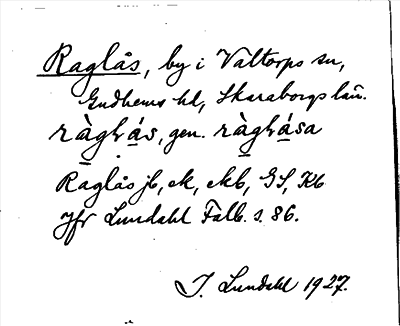 Raglås, by i Valtorps sn,
Gudhems hd, Skaraborgs län.
ràgḷás, gen. ràgḷása
Raglås jb, ek, ekb, GS, Kb
Jfr Lundahl Falb. s. 86.
I. Lundahl 1927.